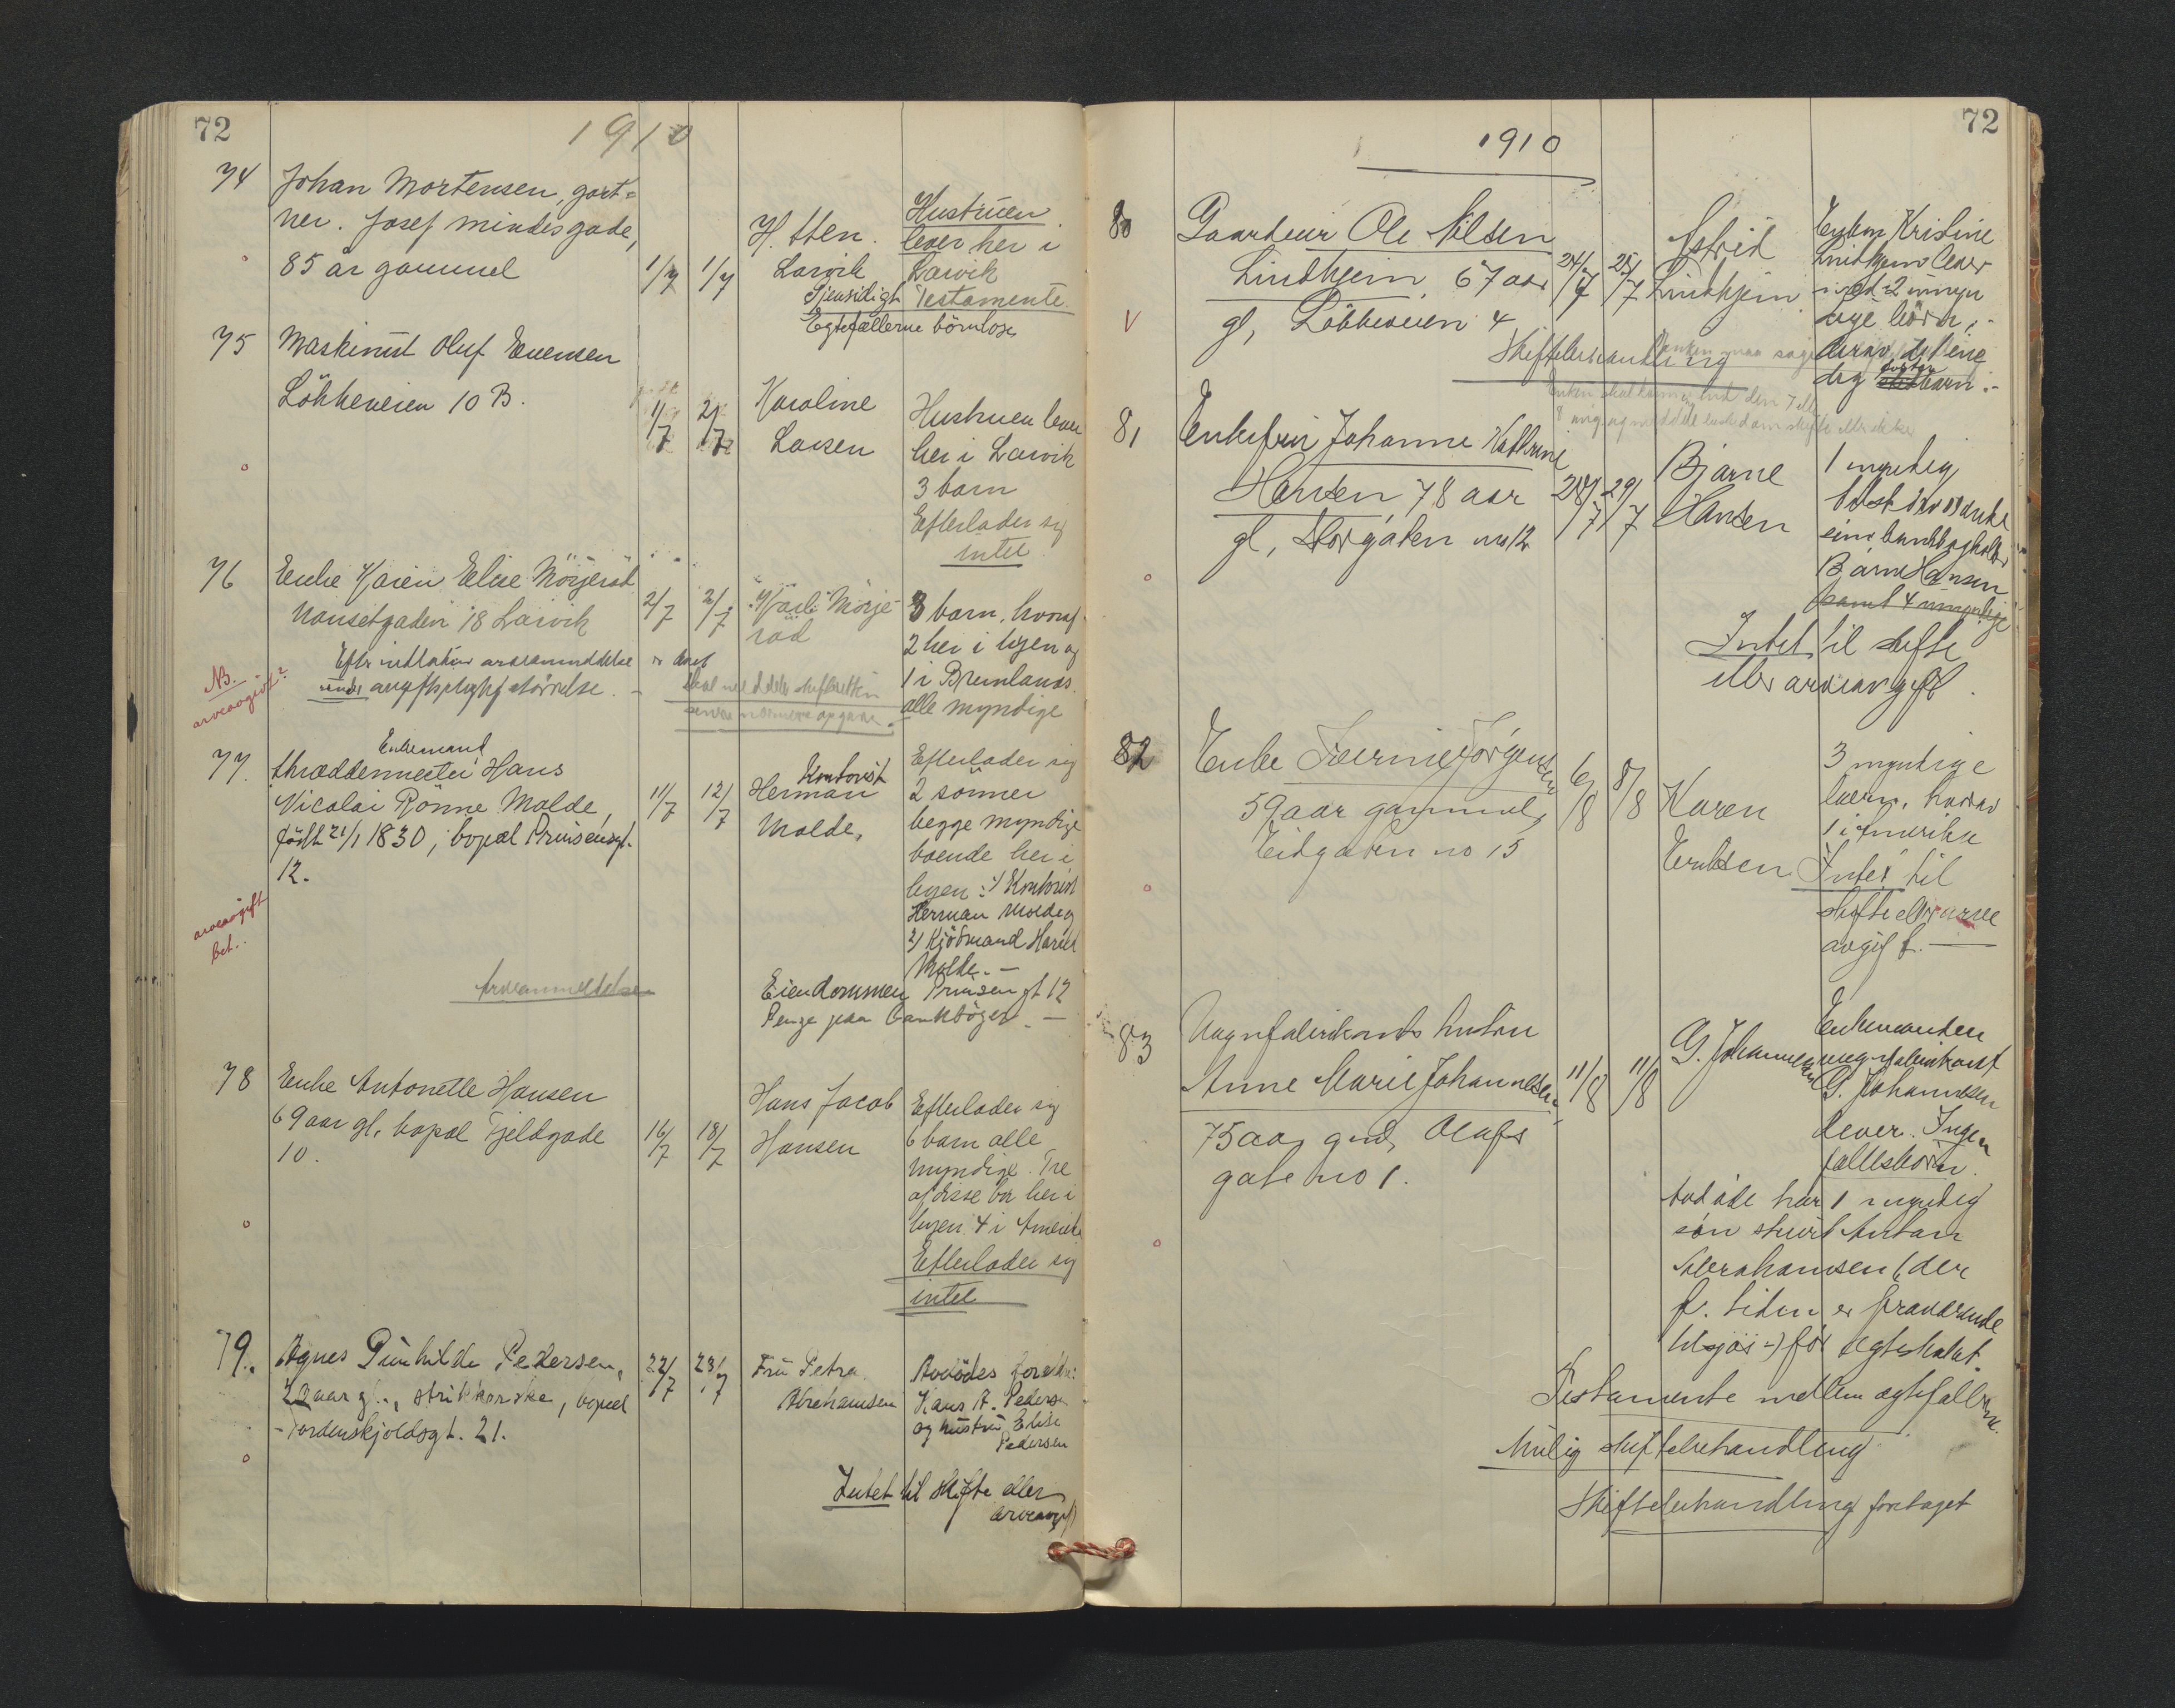 72
1910
74
Johan Mortensen, gart-
ner. Josef Mindes gade,
85 år gammel
1/7
1/7
H. Sten.
Larvik
Hustruen
lever her i
Larvik
Gjensidigt Testamente.
Egtefællerne börnløse
75
Maskinist Oluf Evensen
Lökkeveien 10 B.
1/7
2/7
Karoline
Larsen
Hustruen lever
her i Larvik
3 barn
Efterlader sig
intet
76
Enke Karen Elise
Nansetgaden 18 Larvik
2/7
2/7
3 barn, hvoraf
2 her i byen og
1 i Brunlanes.
alle myndige
NB.
arveavgift?
77.
Enkemand
Hans
Nicolai Rönne Molde,
födt 21/1 1830, bopæl Prinsensgt.
12.
11/7
12/7
Kontorist
Herman
Molde,
Efterlader sig
2 sönner
begge myndige
boende her i
byen: 1/ Kontorist
Herman Molde og
2/ Kjöbmand Harald
Molde. —
arveavgift
bet..
Arveanmeldelse
Eiendommen Prinsengt 12
Penge paa bankböger. —
78
Enke Antonette Hansen
69 aar gl. bopæl Fjeldgade
10.
16/7
18/7
Hans Jacob
Hansen
Efterlader sig
6 barn alle
myndige. Tre
af disse bor her i
byen 4 i Amerika
Efterlader sig
intet
79.
Agnes Gunhilde Pedersen,
aar gl., bopæl
Tordenskjoldsgt. 21.
22/7
23/7
Fru Petra
Abrahamsen
Avdödes foreldre:
Hans A. Pedersen
og hustru Elise
Pedersen
Intet til skifte eller
arveavgift
72
1910
80
Gaardeier Ole Nilsen
Lindhjem, 67 aar
gl, Lökkeveien 4
24/7
25/7
Astrid
Lindhjem
Enken Kristine
Lindhjem lever
med 2 umyn
dige börn,
Skiftebehandling
81
Enkefru Johanne Kathrine
Hansen, 78 aar
gl, Storgaten no 12
28/7
29/7
Bjarne
Hansen
1 myndig
Bjarne Hansen
samt 4 umyndige
Intet til skifte
eller arveavgift.
82
Enke Jörgensen
59 aar gammel,
Eidgaten no 15
6/8
8/8
Karen
Eriksen
3 myndige
barn, hvorav
1 i Amerika
Intet til
skifte eller arve
avgift. —
83
Vognfabrikants hustru
Anne Marie Johannesen,
75 aar gml, Olafs
gate no 1.
11/8
11/8
G. Johannesen
Enkemanden
vognfabrikant
G. Johannesen
lever. Ingen
fellesbörn.
Avdöde har 1 myndig
sön Anton
Abrahamsen (der
f. tiden er fraværende
tilsjös) för egteskabet.
Testamente mellem egtefællerne.
Mulig skiftebehandling
Skiftebehandling foretaget